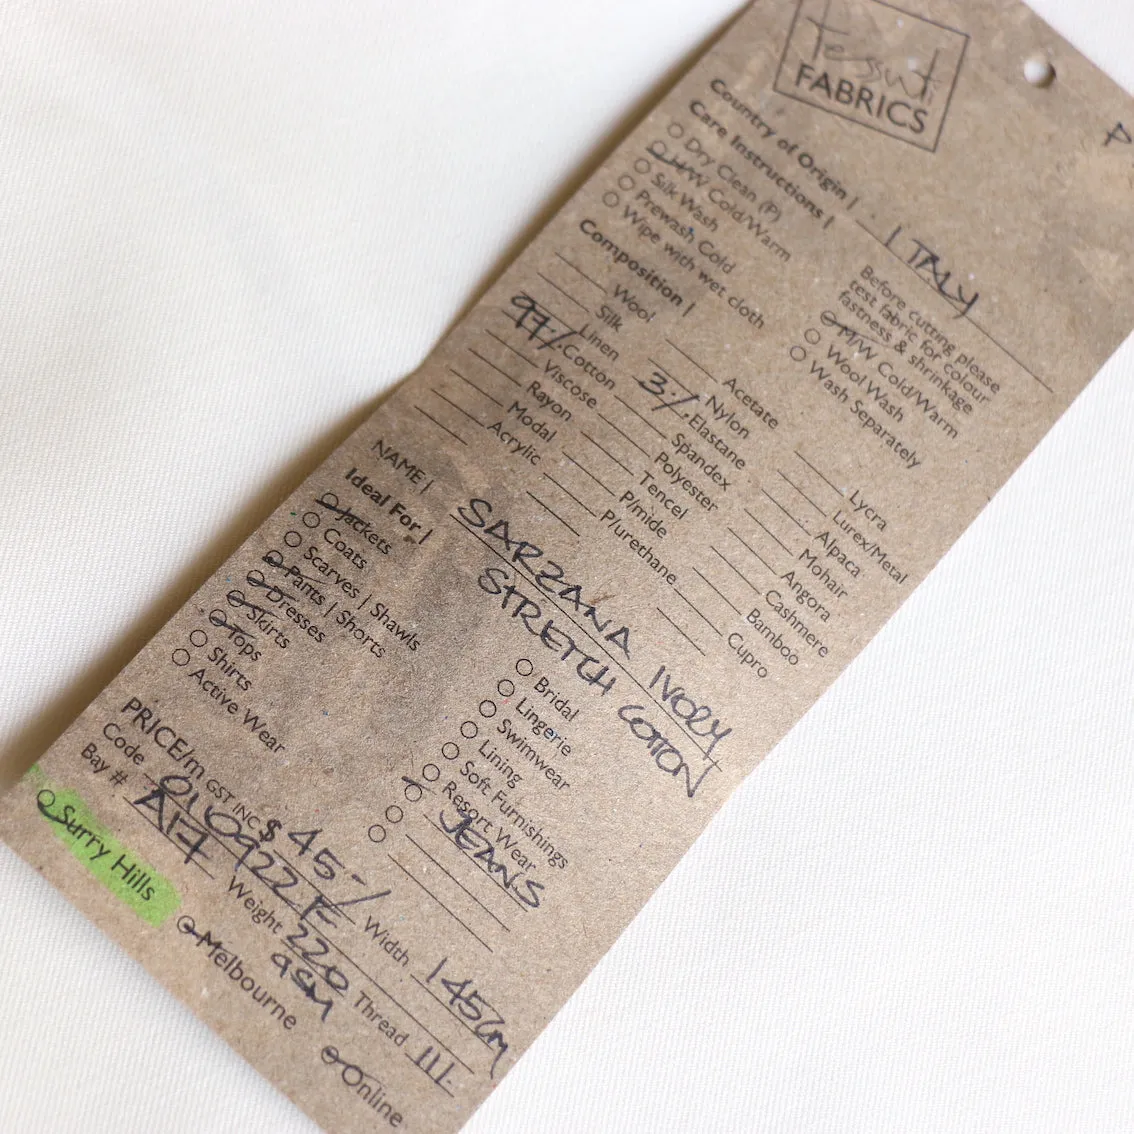 Tessuti
FABRICS
P
Country of Origin | ITALY
Care Instructions |
Before cutting please
test fabric for colour
fastness & shrinkage
Dry Clean (P)
H/W Cold/Warm
Silk Wash
Prewash Cold
Wipe with wet cloth
M/W Cold/Warm
Wool Wash
Wash Separately
Composition |
Wool
Silk
Linen
97% Cotton
Viscose
Rayon
Modal
Acrylic
Acetate
Nylon
3% Elastane
Spandex
Polyester
Tencel
P/mide
P/urethane
Lycra
Lurex/Metal
Alpaca
Mohair
Angora
Cashmere
Bamboo
Cupro
NAME | SARZANA IVORY
STRETCH COTTON
Ideal For |
Jackets
Coats
Scarves | Shawls
Pants | Shorts
Dresses
Skirts
Tops
Shirts
Active Wear
Bridal
Lingerie
Swimwear
Lining
Soft Furnishings
Resort Wear
JEANS
PRICE/m GST INC $ 45-/ Width 145cm
Code 0110922F Weight 220 gsm Thread 111
Bay # A17
Surry Hills
Melbourne
Online